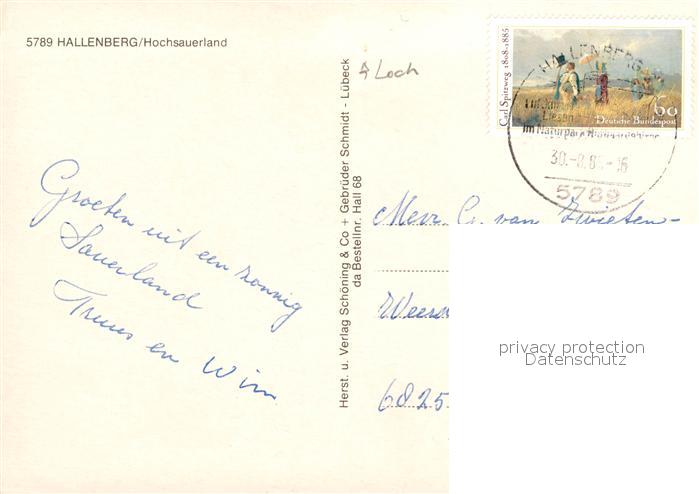 5789 HALLENBERG/Hochsauerland
Loch
Carl Spitzweg 1808-1885
60
Deutsche Bundespost
HALLENBERG
Liesen
im Naturpark
5789
Groeten uit een zonnig
Sauerland
Truus en Wim
Herst. u. Verlag Schöning & Co + Gebrüder Schmidt - Lübeck
da Bestellnr. Hall 68
Mevr. G. van Zwieten-
6825
privacy protection
Datenschutz